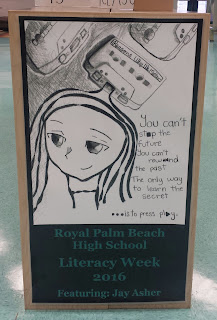 You can't
stop the
future
You can't
rewind
the past
The only way
to learn the
secret
...is to press play.
Royal Palm Beach
High School
Literacy Week
2016
Featuring: Jay Asher